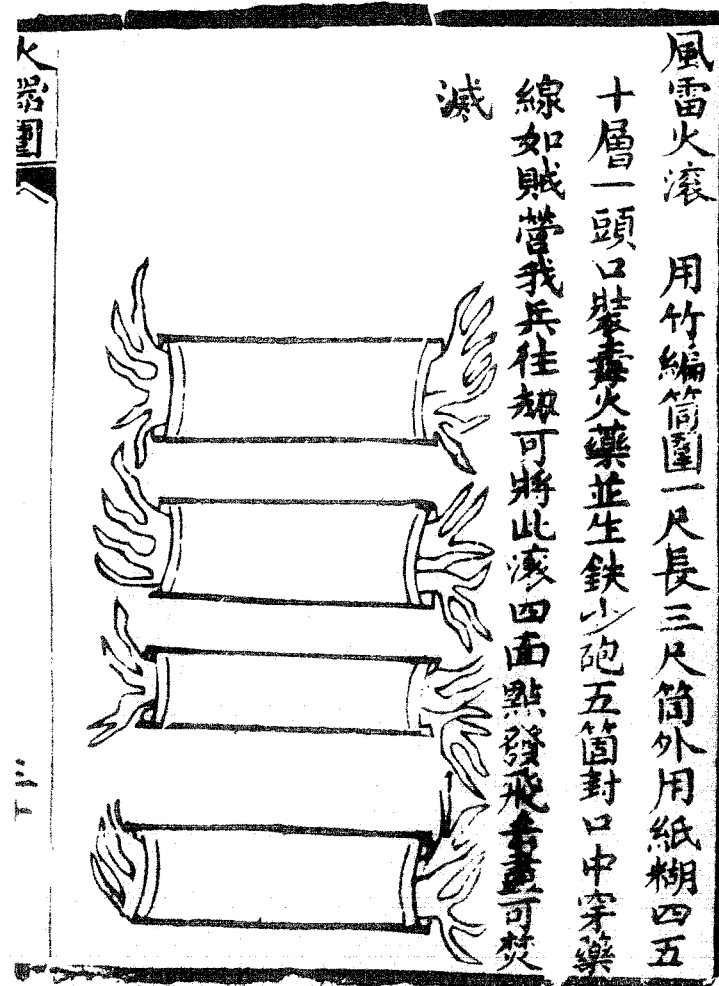 風雷火滾　用竹編筒圍一尺長三尺筒外用紙糊四五
十層一頭口裝毒火藥並生鉄小砲五箇封口中穿藥
線如賊營我兵往刼可將此滾四面點發飛去盡可焚
滅
火器圖